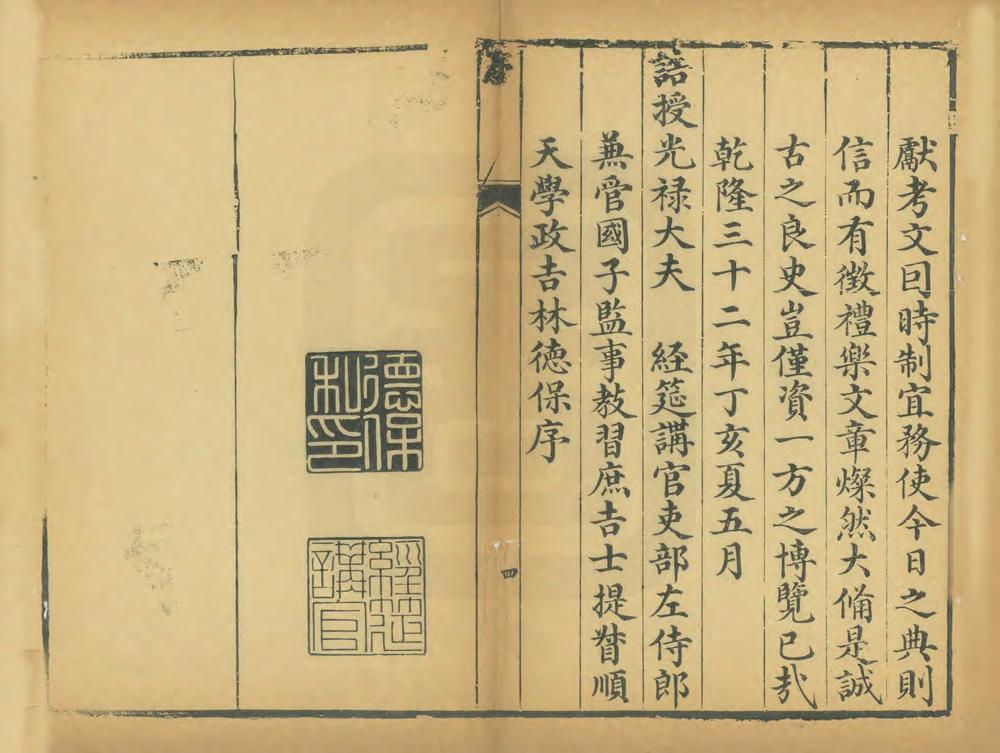 獻考文囙時制宜務使今日之典則
信而有徵禮樂文章燦然大俻是誠
古之良史豈僅資一方之博覽已㢤
乾隆三十二年丁亥夏五月
誥授光禄大夫 経筵講官吏部左侍郎
蕪管國子監事教習庶吉士提督順
天學政吉林徳保序
四
德保私印
經筵講官